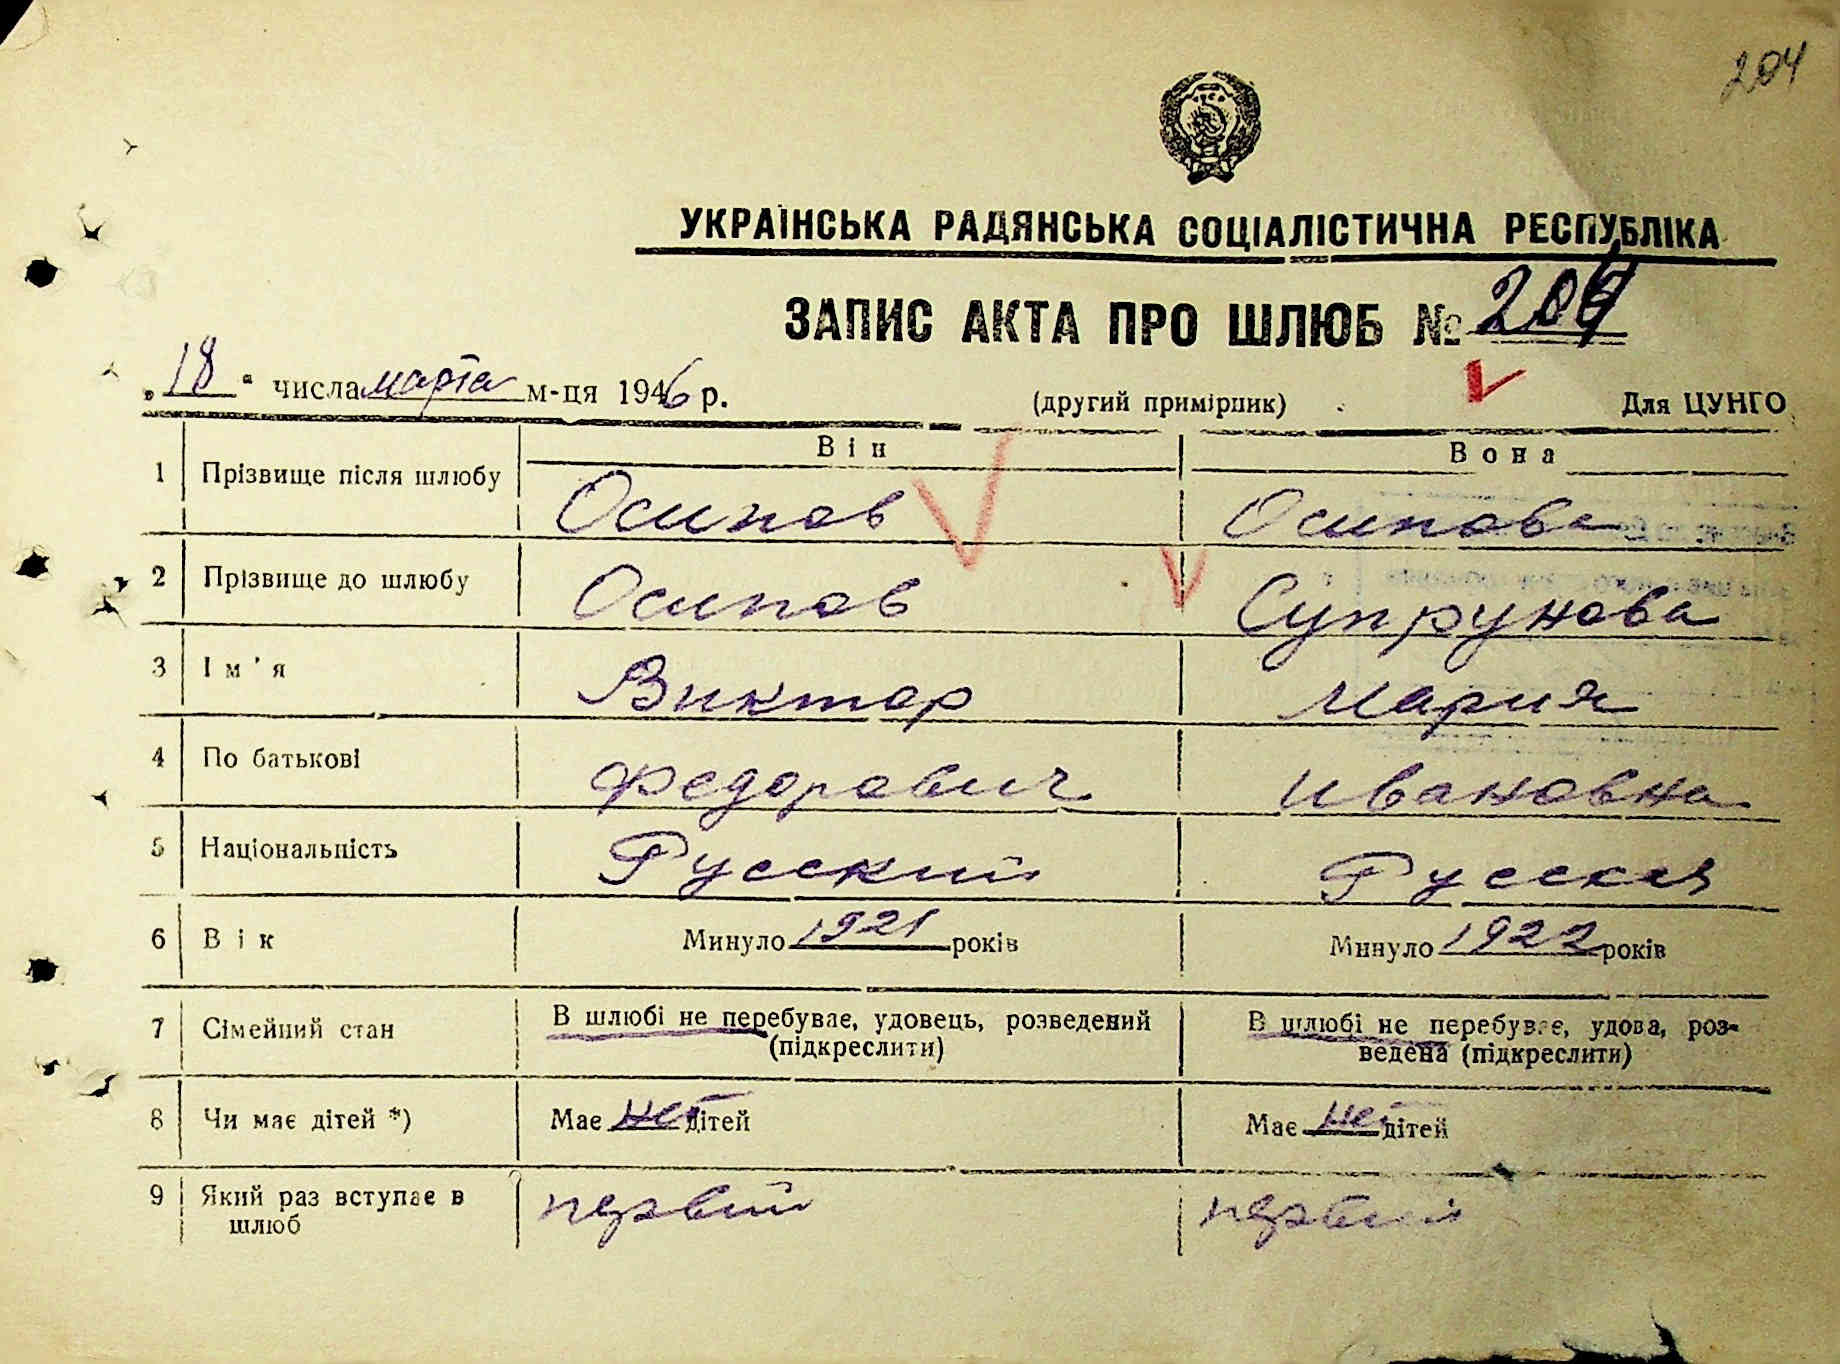 204
УКРАЇНСЬКА РАДЯНСЬКА СОЦІАЛІСТИЧНА РЕСПУБЛІКА
ЗАПИС АКТА ПРО ШЛЮБ № 204
„18“ числа марта м-ця 1946 р. (другий примірник) Для ЦУНГО
Він Вона
1 Прізвище після шлюбу Осипов Осипова
2 Прізвище до шлюбу Осипов Супрунова
3 Ім'я Виктор Мария
4 По батькові Федорович Ивановна
5 Національність Русский Русская
6 Вік Минуло 1921 років Минуло 1922 років
7 Сімейний стан В шлюбі не перебуває, удовець, розведений (підкреслити) В шлюбі не перебуває, удова, роз-
ведена (підкреслити)
8 Чи має дітей *) Має нет дітей Має нет дітей
9 Який раз вступає в первый первый
шлюб